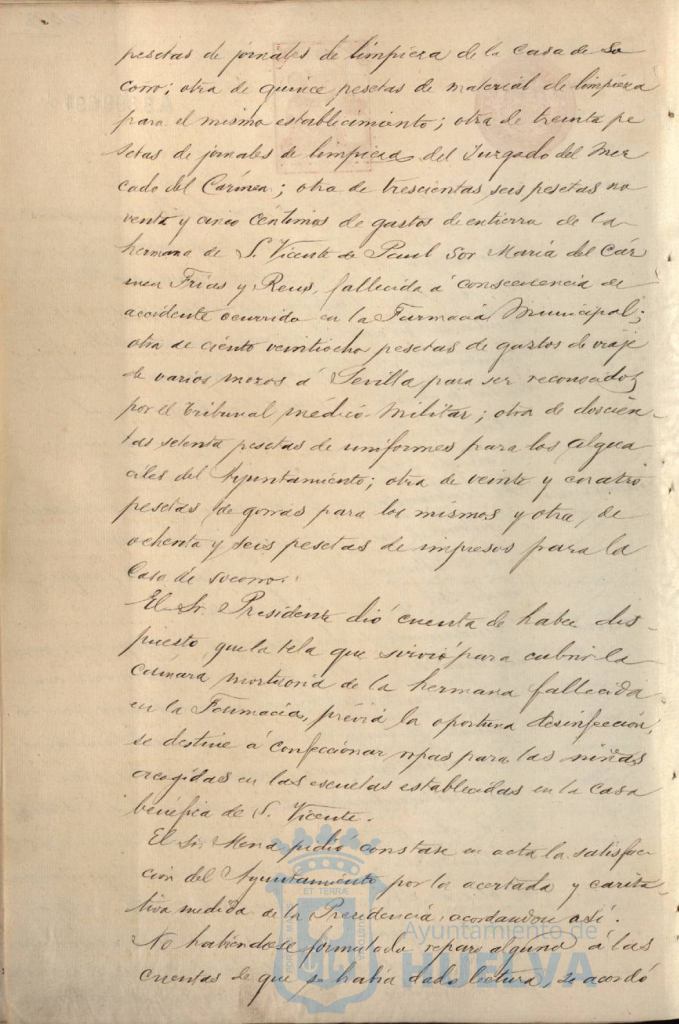 pesetas de jornales de limpieza de la Casa de So
corro; otra de quince pesetas de material de limpieza
para el mismo establecimiento; otra de treinta pe
setas de jornales de limpieza del Juzgado del Mer
cado del Carmen; otra de trescientas seis pesetas no
venta y cinco céntimos de gastos de entierro de la
hermana de S. Vicente de Paul Sor María del Cár
men Frias y Reus, fallecida á consecuencia de
accidente ocurrido en la Farmacia Municipal;
otra de ciento veintiocho pesetas de gastos de viaje
de varios mozos á Sevilla para ser reconocidos
por el Tribunal médico Militar; otra de doscien-
tas setenta pesetas de uniformes para los algua
ciles del Ayuntamiento; otra de veinte y cuatro
pesetas de gorras para los mismos y otra de
ochenta y seis pesetas de impresos para la
Casa de socorro.
El Sr. Presidente dió cuenta de haber dis-
puesto, que la tela que sirvió para cubrir la
cámara mortuoria de la hermana fallecida
en la Farmacia, prévia la oportuna desinfección,
se destine á confeccionar ropas para las niñas
acogidas en las escuelas establecidas en la Casa
benéfica de S. Vicente.
El Sr. Mena pidió constase en acta la satisfac-
ción del Ayuntamiento por la acertada y carita-
tiva medida de la Presidencia, acordandose así.
No habiéndose formulado reparo alguno á las
cuentas de que se había dado lectura, se acordó
Ayuntamiento de
HUELVA